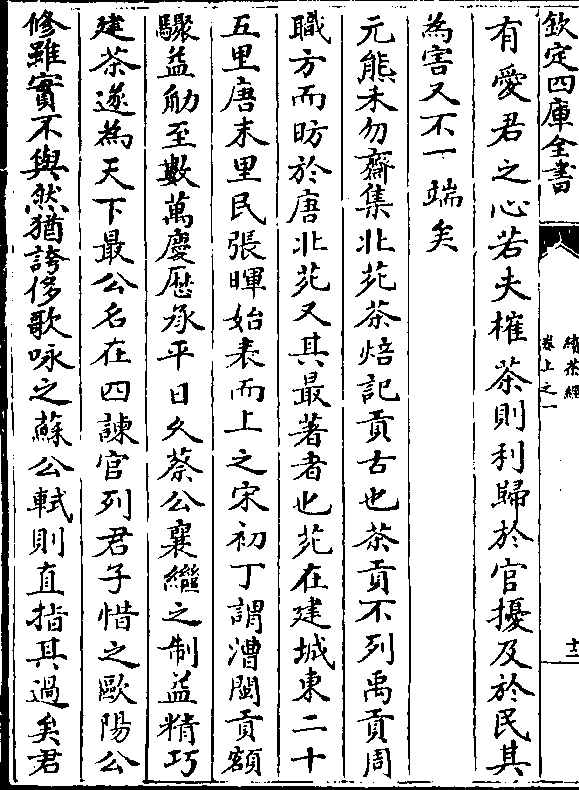 欽定四庫全書
續茶經
卷上之一
十二
有愛君之心若夫榷茶則利歸於官擾及於民其
為害又不一端矣
元熊禾勿齋集北苑茶焙記貢古也茶貢不列禹貢周
職方而昉於唐北苑又其最著者也苑在建城東二十
五里唐末里民張暉始表而上之宋初丁謂漕閩貢額
驟益斤至數萬慶厯承平日久蔡公襄繼之制益精巧
建茶遂為天下最公名在四諫官列君子惜之歐陽公
修雖實不與然猶誇侈歌咏之蘇公軾則直指其過矣君